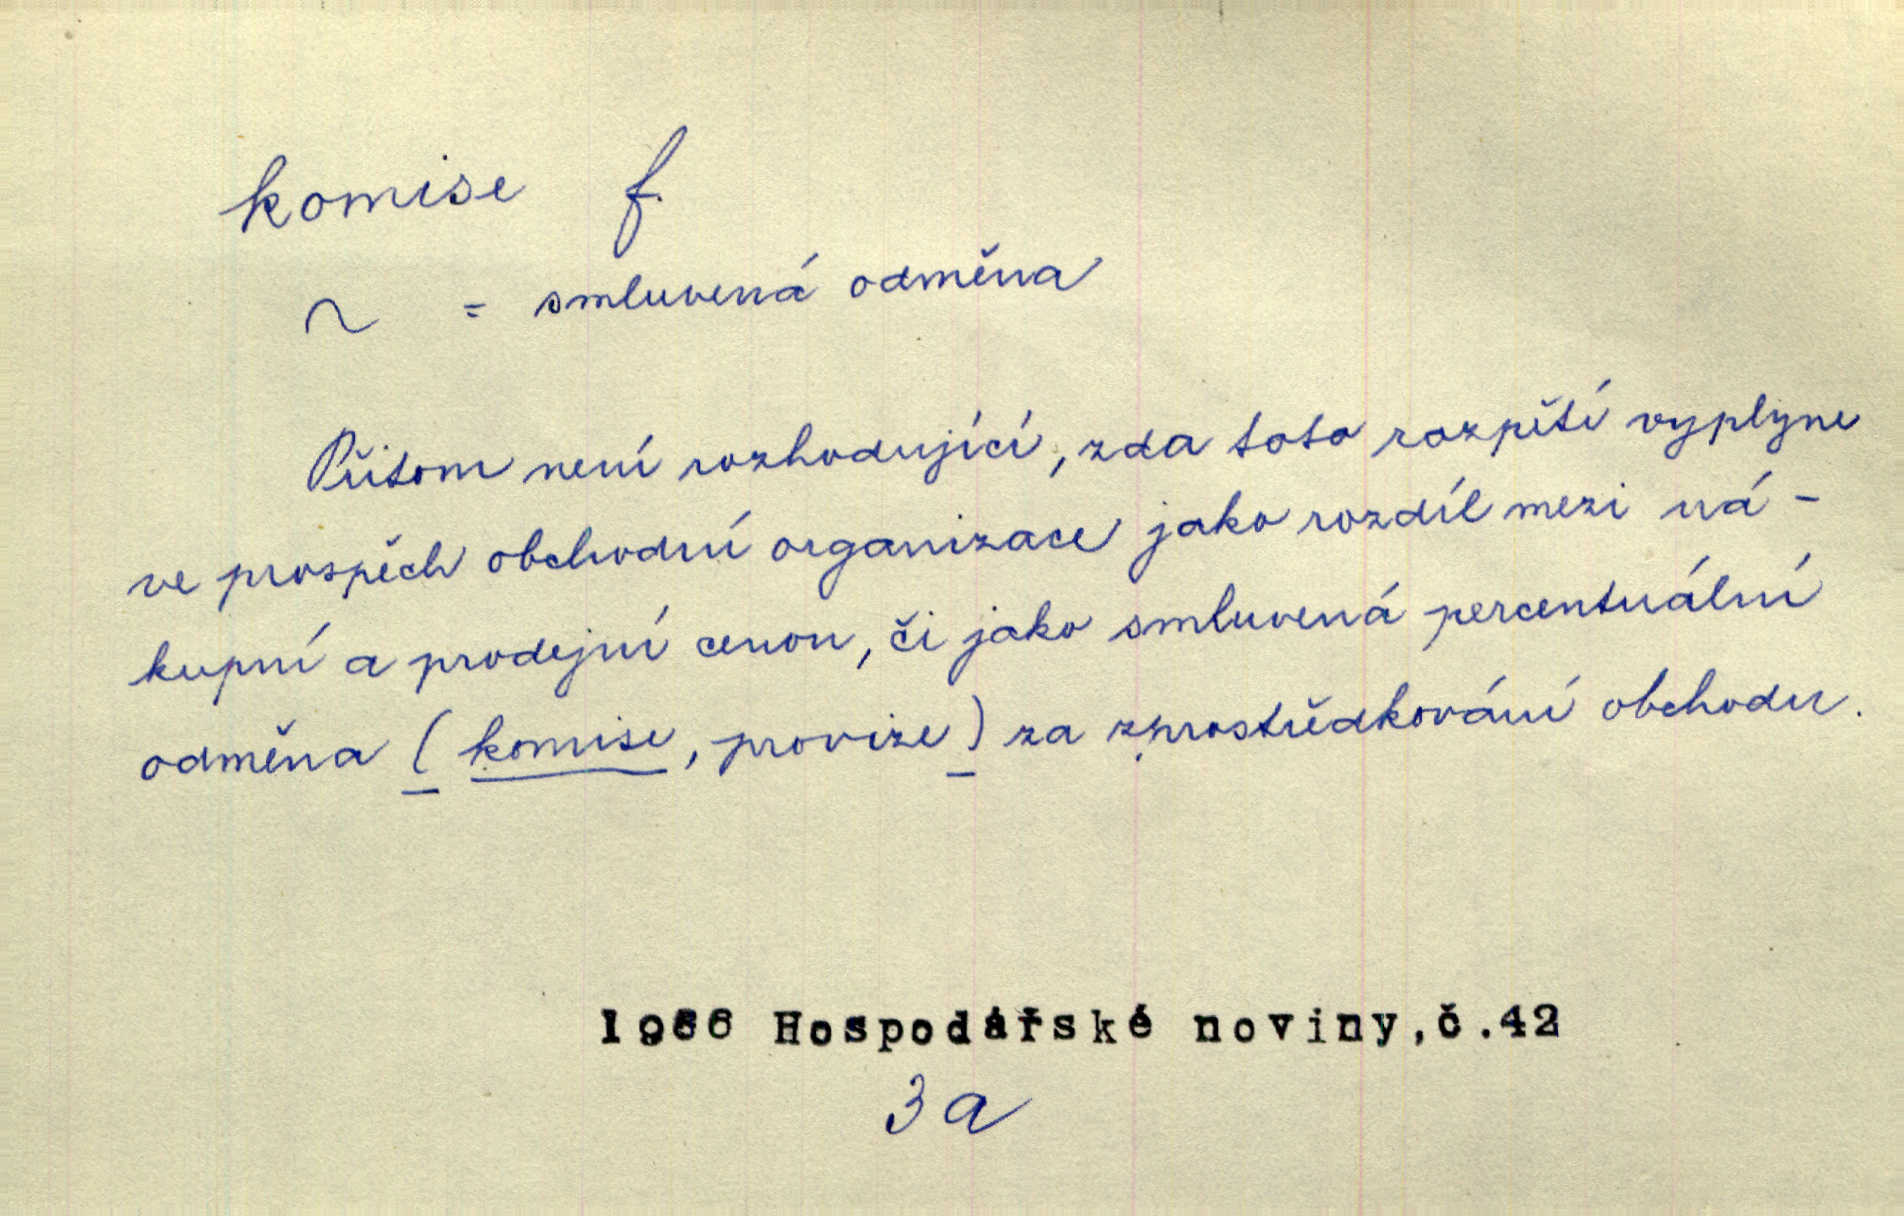 komise f.
~ = smluvená odměna
Přitom není rozhodující, zda toto rozpětí vyplyne
ve prospěch obchodní organizace jako rozdíl mezi ná-
kupní a prodejní cenou, či jako smluvená percentuální
odměna (komise, provize) za zprostředkování obchodu.
1966 Hospodářské noviny,č.42
3a